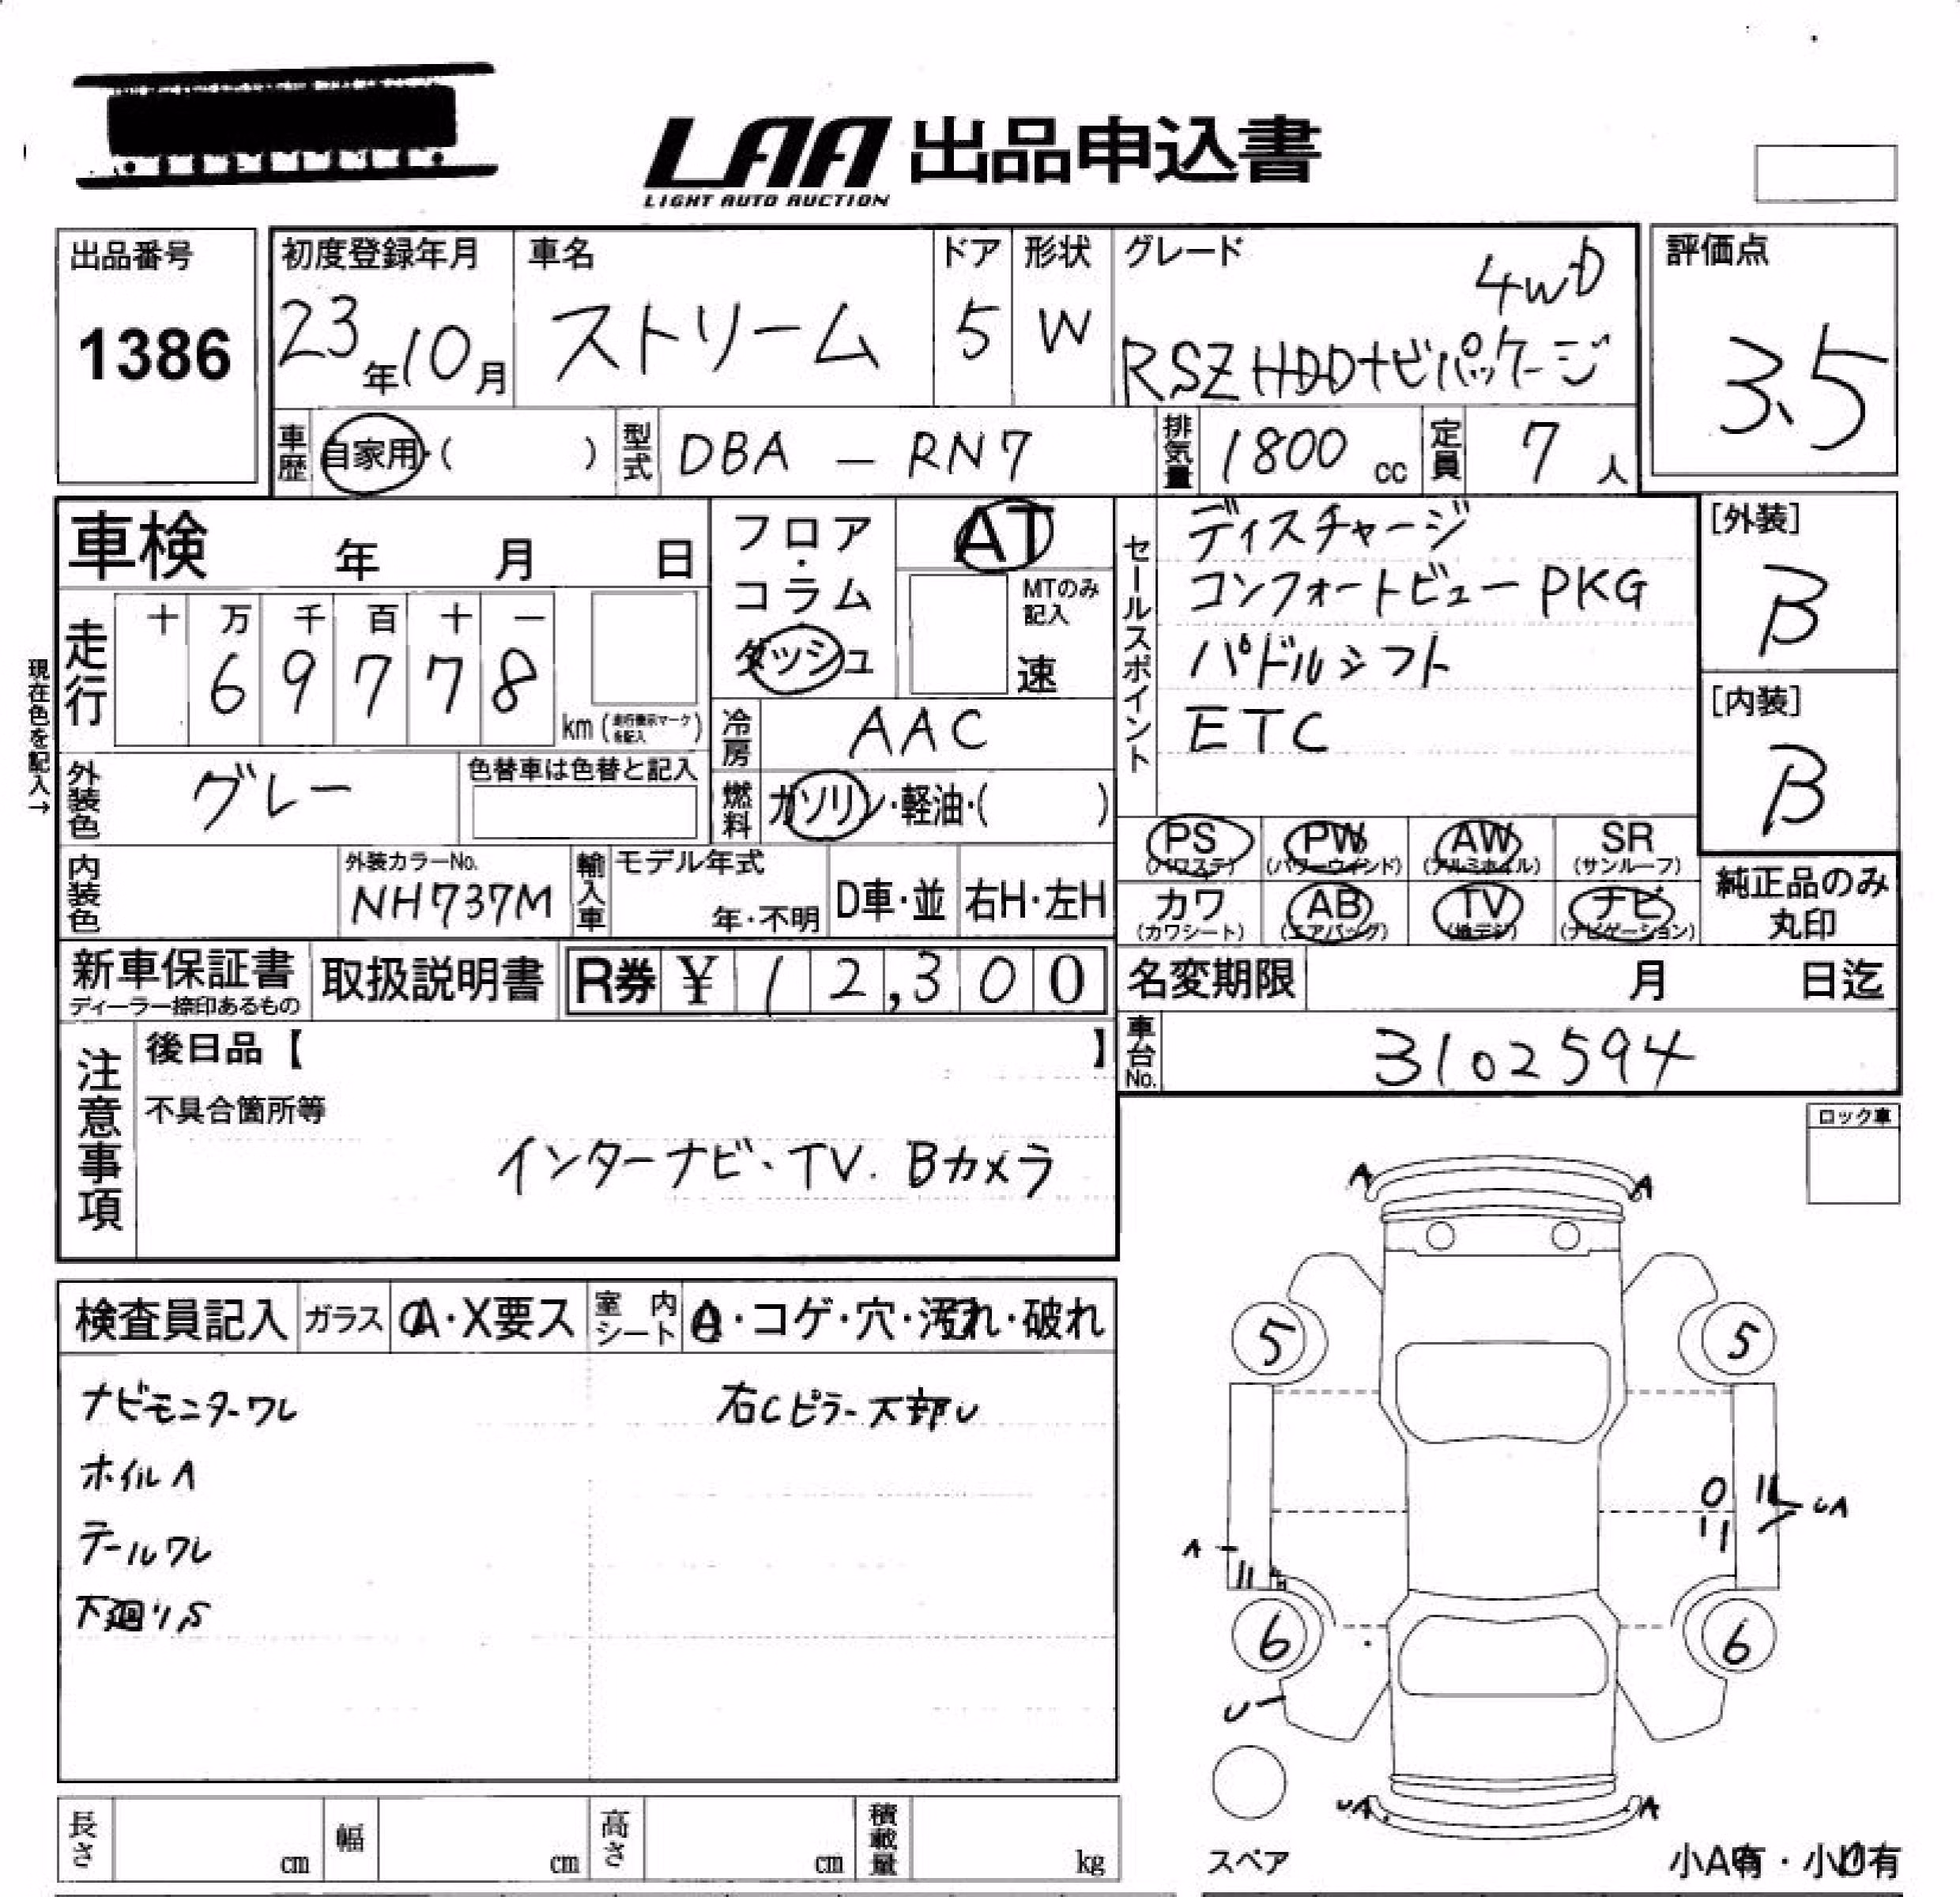 LAA 出品申込書
LIGHT AUTO AUCTION
出品番号
1386
初度登録年月
23年10月
車名
ストリーム
ドア
5
形状
W
グレード
4WD
RSZ HDDナビパッケージ
評価点
3.5
車歴
自家用・( )
型式
DBA - RN7
排気量
1800 cc
定員
7 人
車検 年 月 日
フロア・コラム
ダッシュ
AT
MTのみ記入
速
セールスポイント
ディスチャージ
コンフォートビューPKG
パドルシフト
ETC
[外装]
B
[内装]
B
現在色を記入→
走行
十 万 千 百 十 一
6 9 7 7 8
km (走行表示マークを記入)
冷房
AAC
外装色
グレー
色替車は色替と記入
燃料
ガソリン・軽油・( )
PS (パワステ)
PW (パワーウィンド)
AW (アルミホイル)
SR (サンルーフ)
カワ (カワシート)
AB (エアバッグ)
TV (地デジ)
ナビ (ナビゲーション)
純正品のみ丸印
内装色
外装カラーNo.
NH737M
輸入車
モデル年式
年・不明
D車・並
右H・左H
新車保証書
ディーラー捺印あるもの
取扱説明書
R券 ¥ 12,300
名変期限 月 日迄
車台No.
3102594
注意事項
後日品【 】
不具合箇所等
インターナビ、TV. Bカメラ
ロック車
検査員記入
ガラス
A・X要ス
室内シート
A・コゲ・穴・汚れ・破れ
ナビモニターワレ
右Cピラー下部U
ホイルA
テールワレ
下廻りS
A A
5 5
UA
A
6 6
U
UA A
スペア
小A有・小U有
長さ cm
幅 cm
高さ cm
積載量 kg